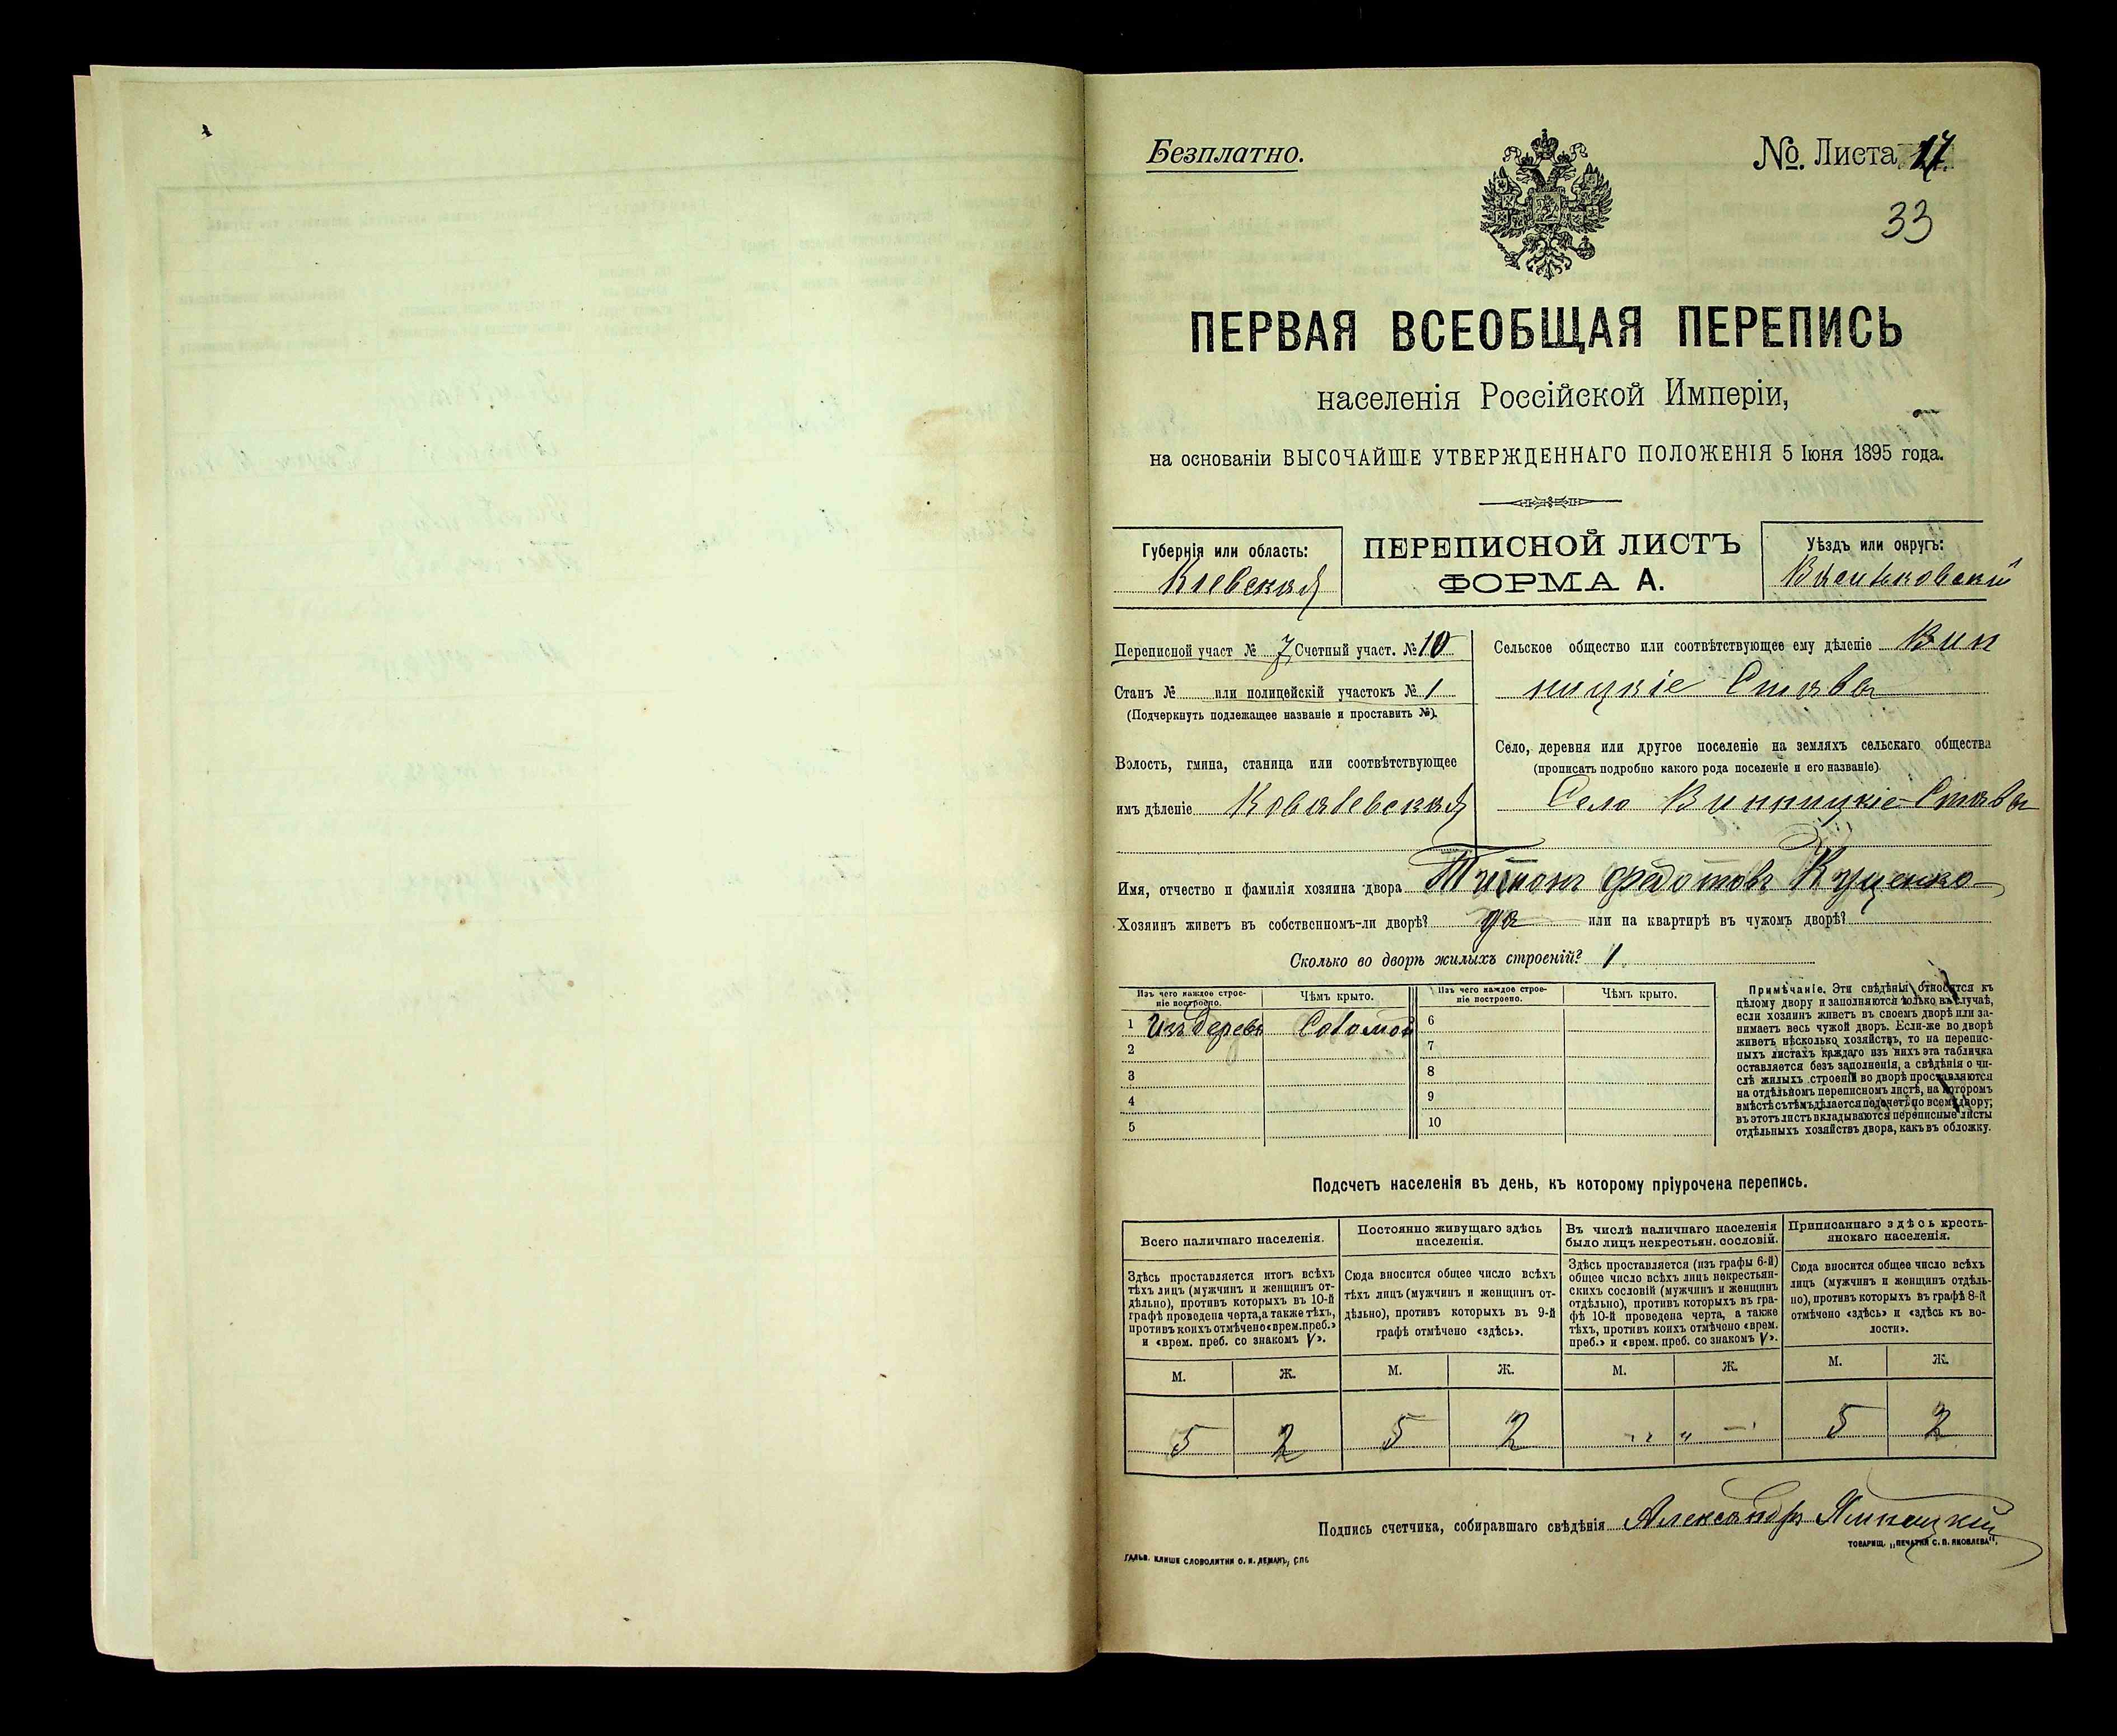 Безплатно.
№ Листа 17.
33
ПЕРВАЯ ВСЕОБЩАЯ ПЕРЕПИСЬ
населенія Россійской Имперіи,
на основаніи ВЫСОЧАЙШЕ УТВЕРЖДЕННАГО ПОЛОЖЕНІЯ 5 Іюня 1895 года.
Губернія или область:
Кіевская
ПЕРЕПИСНОЙ ЛИСТЪ
ФОРМА А.
Уѣздъ или округъ:
Васильковскій
Переписной участ № 7 Счетный участ. № 10
Станъ № или полицейскій участокъ № 1
(Подчеркнуть подлежащее названіе и проставить №).
Волость, гмина, станица или соотвѣтствующее
имъ дѣленіе Ковалевская
Сельское общество или соотвѣтствующее ему дѣленіе Вин
ницкіе Ставы
Село, деревня или другое поселеніе на земляхъ сельскаго общества
(прописать подробно какого рода поселеніе и его названіе)
Село Винницкіе-Ставы
Имя, отчество и фамилія хозяина двора Федотовъ Куценко
Хозяинъ живетъ въ собственномъ-ли дворѣ? да или на квартирѣ въ чужомъ дворѣ?
Сколько во дворѣ жилыхъ строеній? 1
Изъ чего каждое строе-
ніе построено.
Чѣмъ крыто.
Изъ чего каждое строе-
ніе построено.
Чѣмъ крыто.
1 Изъ дерева Соломой 6
2 7
3 8
4 9
5 10
Примѣчаніе. Эти свѣдѣнія относятся къ
цѣлому двору и заполняются только въ случаѣ,
если хозяинъ живетъ въ своемъ дворѣ или за-
нимаетъ весь чужой дворъ. Если-же во дворѣ
живетъ нѣсколько хозяйствъ, то на перепис-
ныхъ листахъ каждаго изъ нихъ эта табличка
оставляется безъ заполненія, а свѣдѣнія о чи-
слѣ жилыхъ строеній во дворѣ проставляются
на отдѣльномъ переписномъ листѣ, на которомъ
вмѣстѣ съ тѣмъ дѣлается подсчетъ по всему двору;
въ этотъ листъ вкладываются переписные листы
отдѣльныхъ хозяйствъ двора, какъ въ обложку.
Подсчетъ населенія въ день, къ которому пріурочена перепись.
Всего наличнаго населенія.
Здѣсь проставляется итогъ всѣхъ
тѣхъ лицъ (мужчинъ и женщинъ от-
дѣльно), противъ которыхъ въ 10-й
графѣ проведена черта, а также тѣхъ,
противъ коихъ отмѣчено «врем. преб.»
и «врем. преб. со знакомъ V».
Постоянно живущаго здѣсь
населенія.
Сюда вносится общее число всѣхъ
тѣхъ лицъ (мужчинъ и женщинъ от-
дѣльно), противъ которыхъ въ 9-й
графѣ отмѣчено «здѣсь».
Въ числѣ наличнаго населенія
было лицъ некрестьян. сословій.
Здѣсь проставляется (изъ графы 6-й)
общее число всѣхъ лицъ некрестьян-
скихъ сословій (мужчинъ и женщинъ
отдѣльно), противъ которыхъ въ гра-
фѣ 10-й проведена черта, а также
тѣхъ, противъ коихъ отмѣчено «врем.
преб.» и «врем. преб. со знакомъ V».
Приписаннаго здѣсь кресть-
янскаго населенія.
Сюда вносится общее число всѣхъ
лицъ (мужчинъ и женщинъ отдѣль-
но), противъ которыхъ въ графѣ 8-й
отмѣчено «здѣсь» и «здѣсь къ во-
лости».
М. Ж. М. Ж. М. Ж. М. Ж.
5 2 5 2 5 2
Подпись счетчика, собиравшаго свѣдѣнія Александръ
ТОВАРИЩ. „ПЕЧАТНЯ С. П. ЯКОВЛЕВА".
ГАЛЬВ. КЛИШЕ СЛОВОЛИТНИ О. И. ЛЕМАНЪ, СПБ